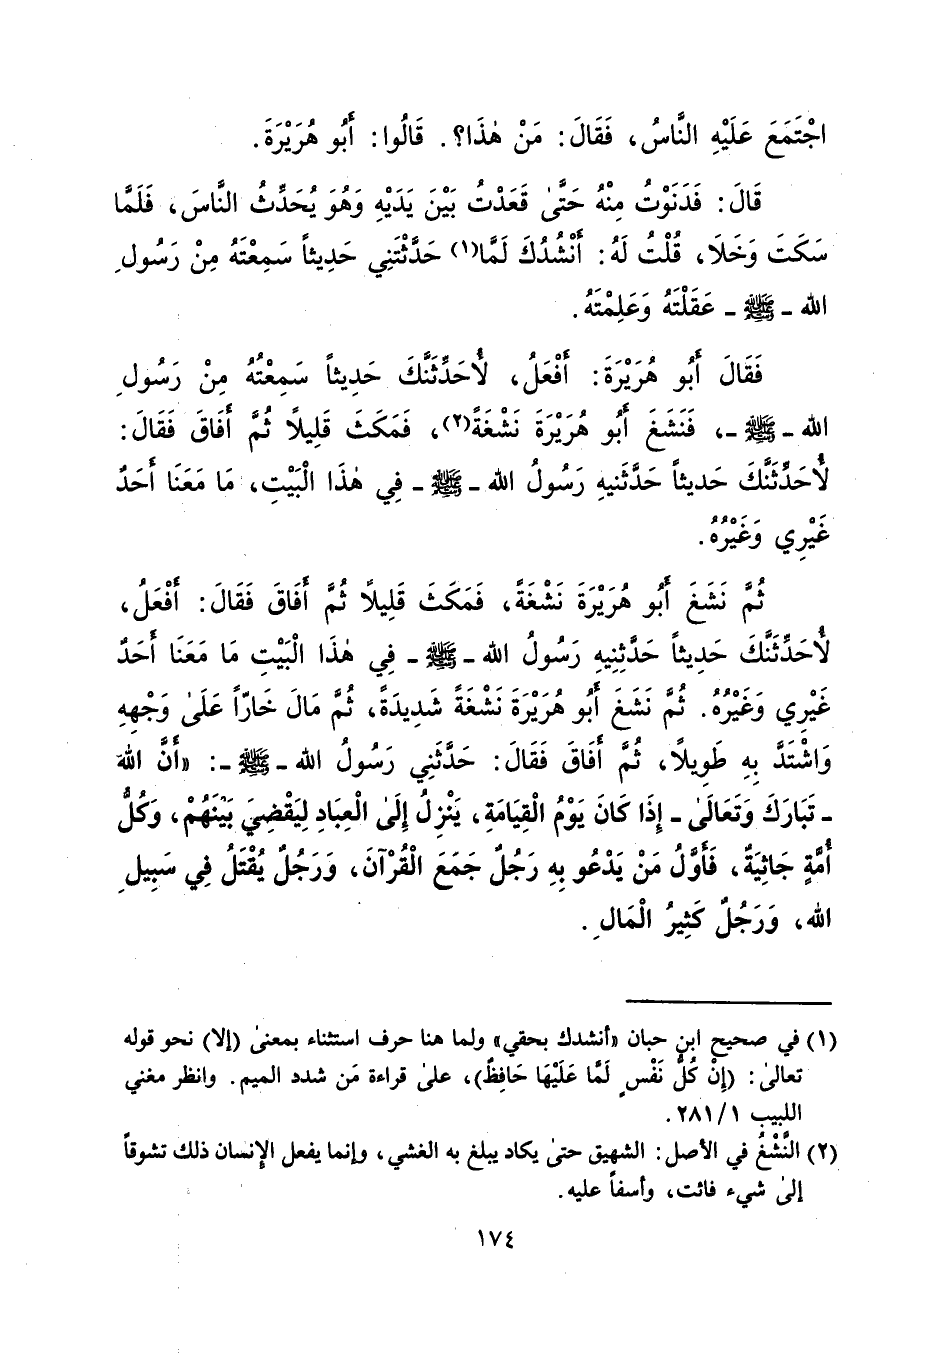 اجْتَمَعَ عَلَيْهِ النَّاسُ، فَقَالَ: مَنْ هٰذَا؟. قَالُوا: أَبُو هُرَيْرَةَ.
قَالَ: فَدَنَوْتُ مِنْهُ حَتَّىٰ قَعَدْتُ بَيْنَ يَدَيْهِ وَهُوَ يُحَدِّثُ النَّاسَ، فَلَمَّا
سَكَتَ وَخَلَا، قُلْتُ لَهُ: أَنْشُدُكَ لَمَّا(١) حَدَّثْتَنِي حَدِيثاً سَمِعْتَهُ مِنْ رَسُولِ
الله ـ ﷺ ـ عَقَلْتَهُ وَعَلِمْتَهُ.
فَقَالَ أَبُو هُرَيْرَةَ: أَفْعَلُ، لأُحَدِّثَنَّكَ حَدِيثاً سَمِعْتُهُ مِنْ رَسُولِ
الله ـ ﷺ ـ، فَنَشَغَ أَبُو هُرَيْرَةَ نَشْغَةً(٢)، فَمَكَثَ قَلِيلًا ثُمَّ أَفَاقَ فَقَالَ:
لأُحَدِّثَنَّكَ حَدِيثاً حَدَّثَنِيهِ رَسُولُ الله ـ ﷺ ـ فِي هٰذَا الْبَيْتِ، مَا مَعَنَا أَحَدٌ
غَيْرِي وَغَيْرُهُ.
ثُمَّ نَشَغَ أَبُو هُرَيْرَةَ نَشْغَةً، فَمَكَثَ قَلِيلًا ثُمَّ أَفَاقَ فَقَالَ: أَفْعَلُ،
لأُحَدِّثَنَّكَ حَدِيثاً حَدَّثَنِيهِ رَسُولُ الله ـ ﷺ ـ فِي هٰذَا الْبَيْتِ مَا مَعَنَا أَحَدٌ
غَيْرِي وَغَيْرُهُ. ثُمَّ نَشَغَ أَبُو هُرَيْرَةَ نَشْغَةً شَدِيدَةً، ثُمَّ مَالَ خَارّاً عَلَىٰ وَجْهِهِ
وَاشْتَدَّ بِهِ طَوِيلًا، ثُمَّ أَفَاقَ فَقَالَ: حَدَّثَنِي رَسُولُ الله ـ ﷺ ـ: «أَنَّ اللهَ
ـ تَبَارَكَ وَتَعَالَىٰ ـ إِذَا كَانَ يَوْمُ الْقِيَامَةِ، يَنْزِلُ إِلَىٰ الْعِبَادِ لِيَقْضِيَ بَيْنَهُمْ، وَكُلُّ
أُمَّةٍ جَاثِيَةٌ، فَأَوَّلُ مَنْ يَدْعُو بِهِ رَجُلٌ جَمَعَ الْقُرْآنَ، وَرَجُلٌ يُقْتَلُ فِي سَبِيلِ
الله، وَرَجُلٌ كَثِيرُ الْمَالِ.
(١) في صحيح ابن حبان «أنشدك بحقي» ولما هنا حرف استثناء بمعنىٰ (إلا) نحو قوله
تعالىٰ: (إِنْ كُلُّ نَفْسٍ لَمَّا عَلَيْهَا حَافِظٌ)، علىٰ قراءة مَن شدد الميم. وانظر مغني
اللبيب ١/ ٢٨١.
(٢) النَّشْغُ في الأصل: الشهيق حتىٰ يكاد يبلغ به الغشي، وإنما يفعل الإنسان ذلك تشوقاً
إلىٰ شيء فائت، وأسفاً عليه.
١٧٤